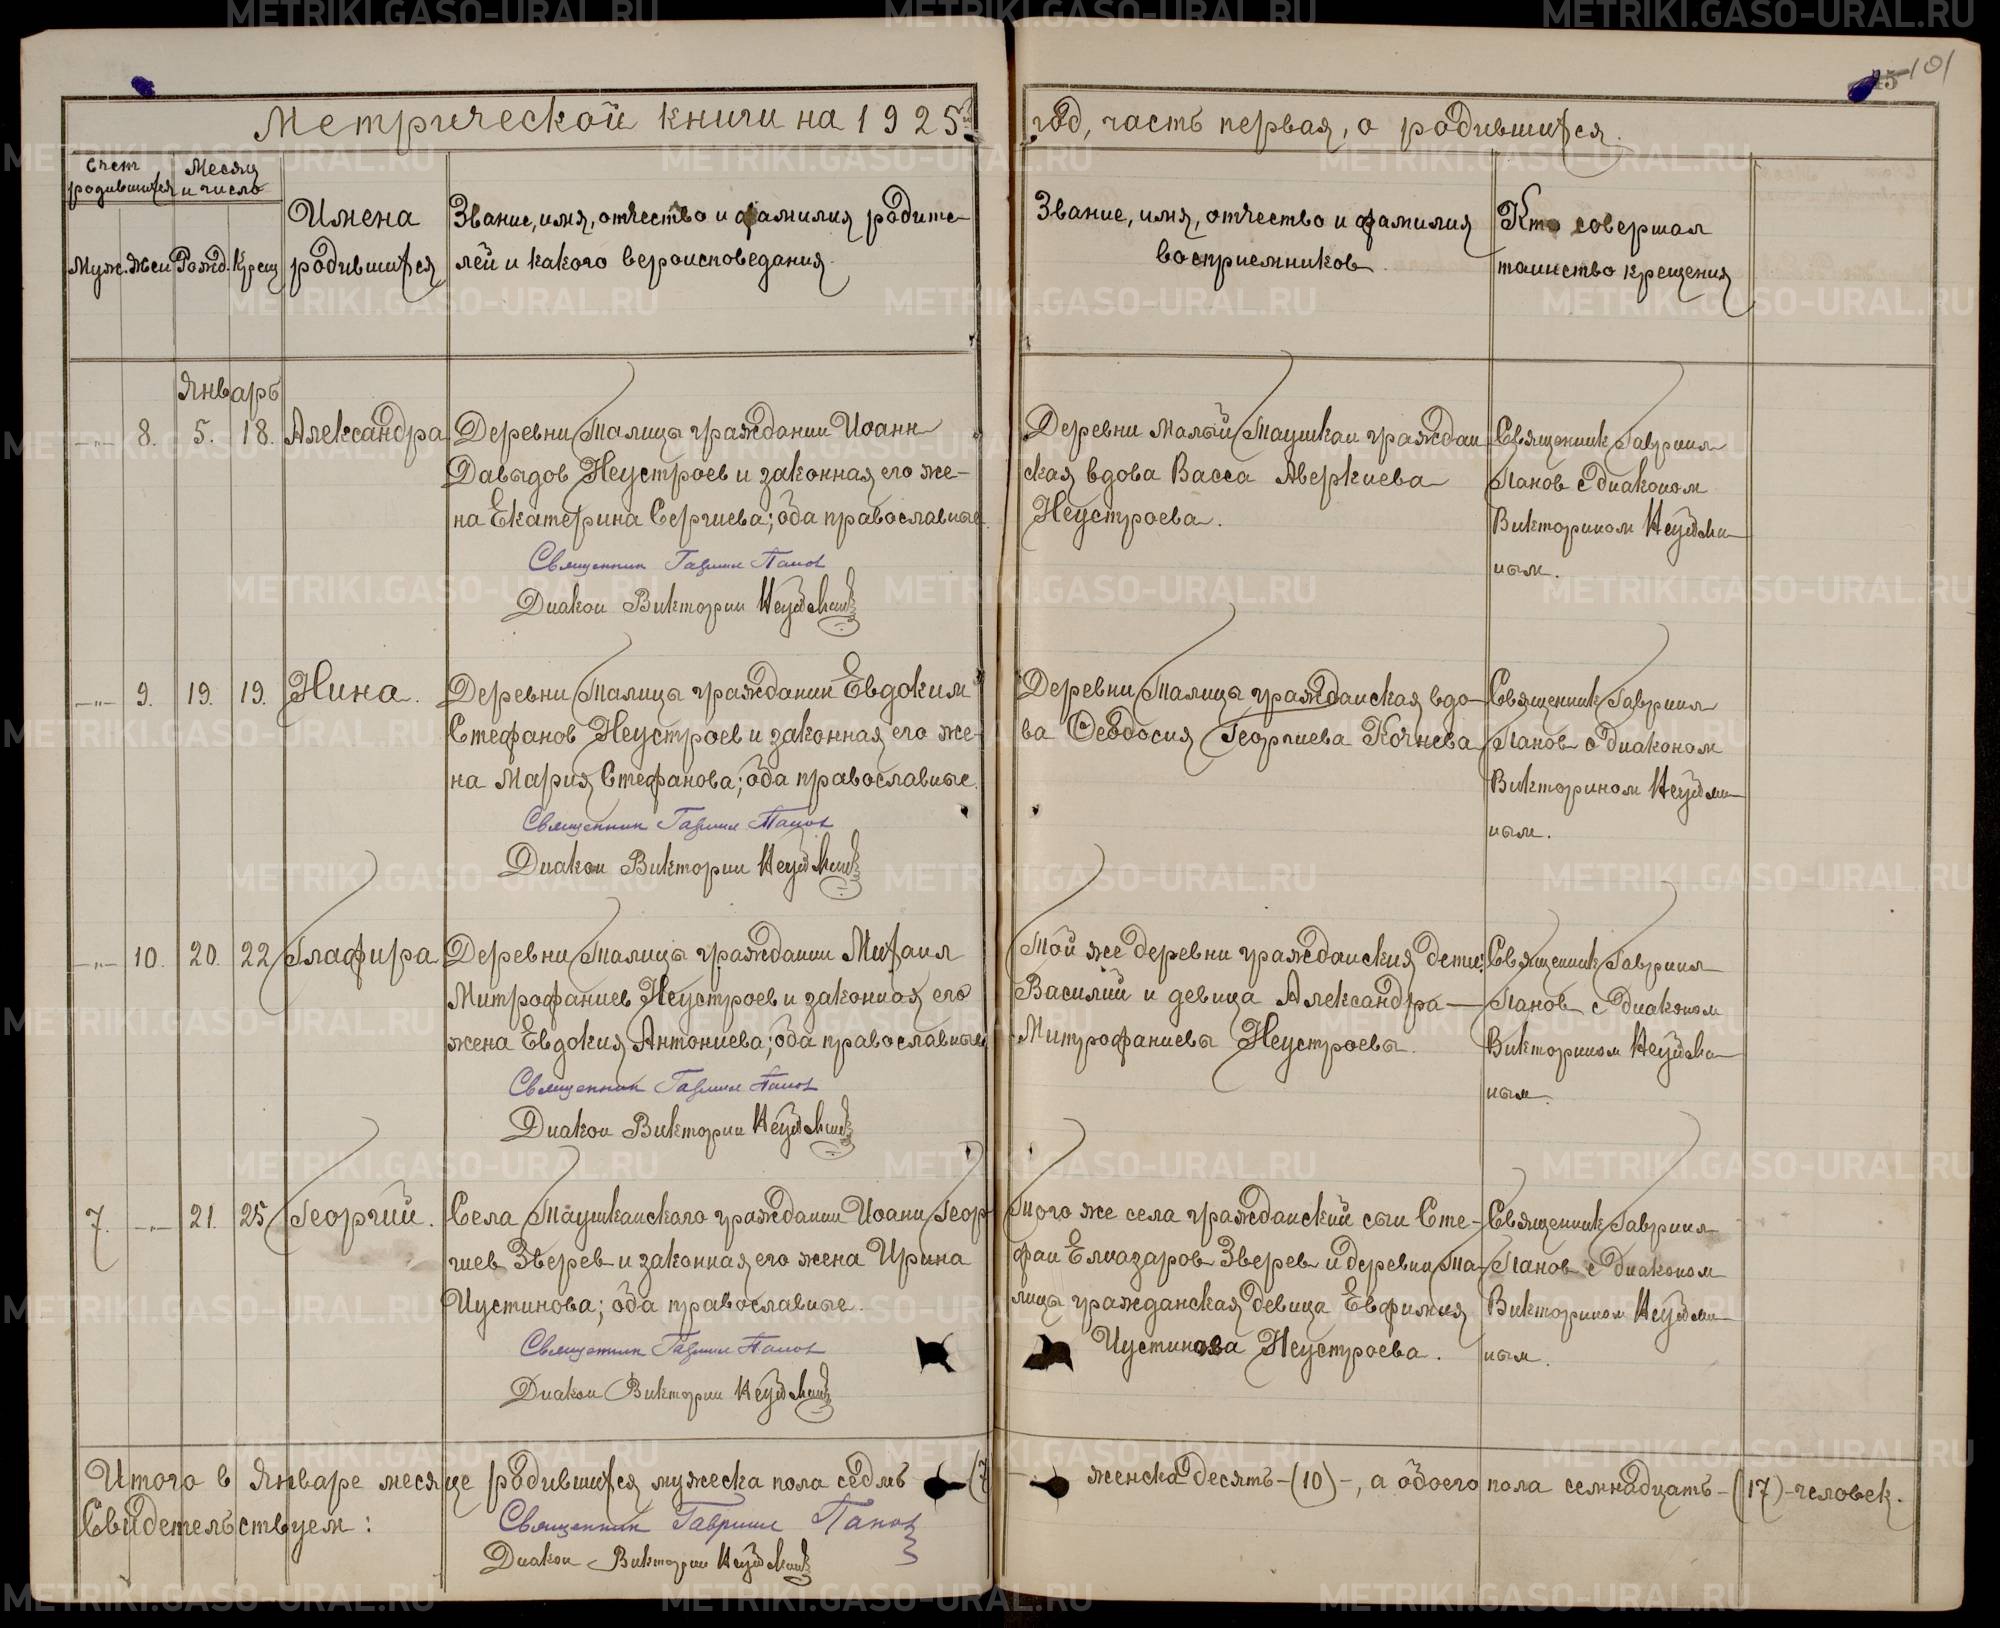 101
Метрической книги на 1925й год, часть первая, о родившихся.
Счет родившихся
Месяц и число
Муж. Жен Рожд. Крещ
Имена родившихся
Звание, имя, отчество и фамилия родите-
лей и какого вероисповедания.
Звание, имя, отчество и фамилия
восприемников.
Кто совершал
таинство крещения
Январь
—„— 8. 5. 18. Александра
Деревни Талицы гражданин Иоанн
Давыдов Неустроев и законная его же-
на Екатерина Сергиева; оба православные.
Священник Гавриил Панов
Диакон Викторин
Деревни Малый Таушкан граждан
ская вдова Васса Аверкиева
Неустроева.
Священник Гавриил
Панов с диаконом
Викторином
ным.
—„— 9. 19. 19. Нина.
Деревни Талицы гражданин Евдоким
Стефанов Неустроев и законная его же-
на Мария Стефанова; оба православные.
Священник Гавриил Панов
Диакон Викторин
Деревни Талицы гражданская вдо-
ва Феодосия Георгиева Кочнева
Священник Гавриил
Панов с диаконом
Викторином
ным.
—„— 10. 20. 22 Глафира
Деревни Талицы гражданин Михаил
Митрофаниев Неустроев и законная его
жена Евдокия Антониева; оба православные
Священник Гавриил Панов
Диакон Викторин
Той же деревни гражданския дети:
Василий и девица Александра —
Митрофаниевы Неустроевы.
Священник Гавриил
Панов с диаконом
Викторином
ным.
7. —„— 21. 25 Георгий.
Села Таушканского гражданин Иоанн Геор-
гиев Зверев и законная его жена Ирина
Иустинова; оба православные.
Священник Гавриил Панов
Диакон Викторин
Того же села гражданский сын Сте-
фан Елиазаров Зверев и деревни Та-
лицы гражданская девица Евфимия
Иустинова Неустроева.
Священник Гавриил
Панов с диаконом
Викторином
ным.
Итого в Январе месяце родившихся мужеска пола седмь — (7) — женска десять – (10) –, а обоего пола семнадцать – (17) – человек.
Свидетельствуем:
Священник Гавриил Панов
Диакон Викторин
METRIKI.GASO-URAL.RU